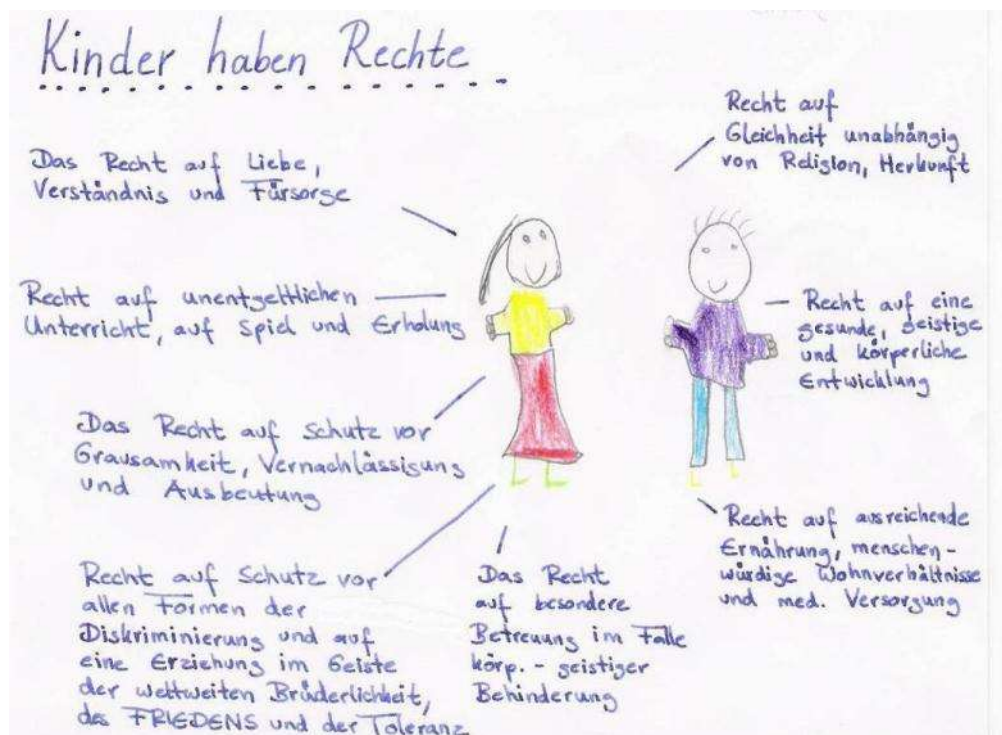 Kinder haben Rechte
Das Recht auf Liebe,
Verständnis und Fürsorge
Recht auf unentgeltlichen
Unterricht, auf Spiel und Erholung
Das Recht auf Schutz vor
Grausamkeit, Vernachlässigung
und Ausbeutung
Recht auf Schutz vor
allen Formen der
Diskriminierung und auf
eine Erziehung im Geiste
der weltweiten Brüderlichkeit,
des FRIEDENS und der Toleranz
Das Recht
auf besondere
Betreuung im Falle
körp. - geistiger
Behinderung
Recht auf
Gleichheit unabhängig
von Religion, Herkunft
Recht auf eine
gesunde, geistige
und körperliche
Entwicklung
Recht auf ausreichende
Ernährung, menschen-
würdige Wohnverhältnisse
und med. Versorgung